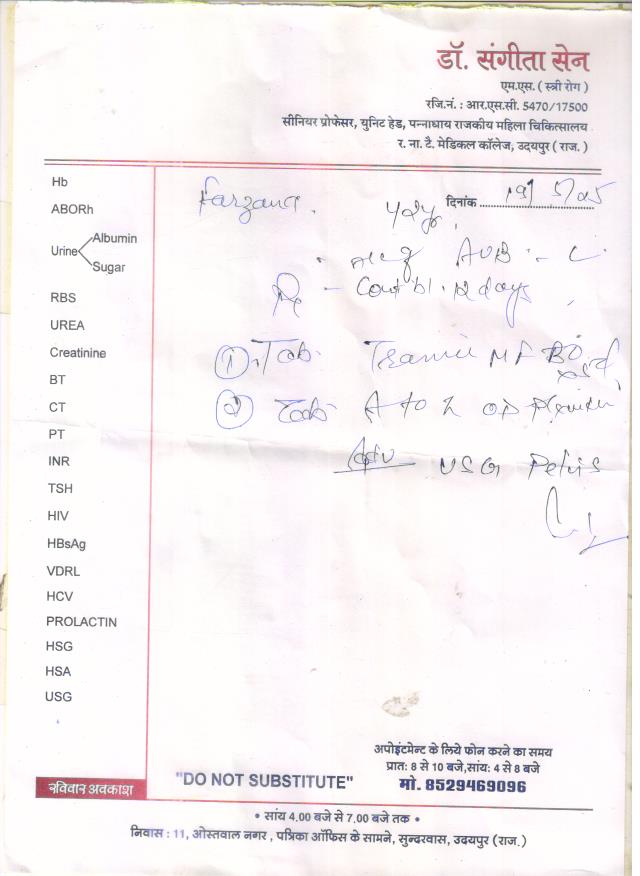 डॉ. संगीता सेन
एम.एस. ( स्त्री रोग )
रजि.नं. : आर.एस.सी. 5470/17500
सीनियर प्रोफेसर, युनिट हेड, पन्नाधाय राजकीय महिला चिकित्सालय
र. ना. टै. मेडिकल कॉलेज, उदयपुर ( राज. )
Hb
ABORh
Urine Albumin
Sugar
RBS
UREA
Creatinine
BT
CT
PT
INR
TSH
HIV
HBsAg
VDRL
HCV
PROLACTIN
HSG
HSA
USG
Farzana. 42y दिनांक
AUB
Rx 12 days
① Tab. MF BD
② Tab A to Z OD
Adv USG Pelvis
अपोइंटमेन्ट के लिये फोन करने का समय
प्रात: 8 से 10 बजे,सांय: 4 से 8 बजे
मो. 8529469096
रविवार अवकाश
"DO NOT SUBSTITUTE"
• सांय 4.00 बजे से 7.00 बजे तक •
निवास : 11, ओस्तवाल नगर , पत्रिका ऑफिस के सामने, सुन्दरवास, उदयपुर (राज.)